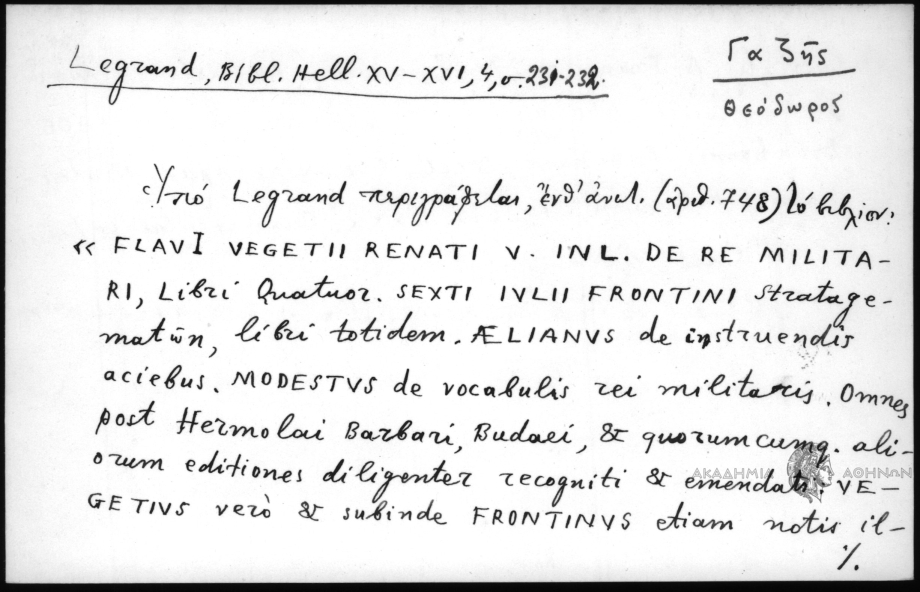 Legrand, Bibl. Hell. XV–XVI, 4, σ. 231-232.
Γαζῆς
Θεόδωρος
Ὑπό Legrand περιγράφεται, ἔνθ' ἀνωτ. (ἀριθ. 748) τό βιβλίον:
« FLAVI VEGETII RENATI V. INL. DE RE MILITA-
RI, Libri Quatuor. SEXTI IVLII FRONTINI Stratage-
matωn, libri totidem. ÆLIANVS de instruendis
aciebus. MODESTVS de vocabulis rei militaris. Omnes
post Hermolai Barbari, Budaei, & quorumcumq. ali-
orum editiones diligenter recogniti & emendati: VE-
GETIVS verò & subinde FRONTINVS etiam notis il-
·/.
ΑΚΑΔΗΜΙΑ ΑΘΗΝΩΝ